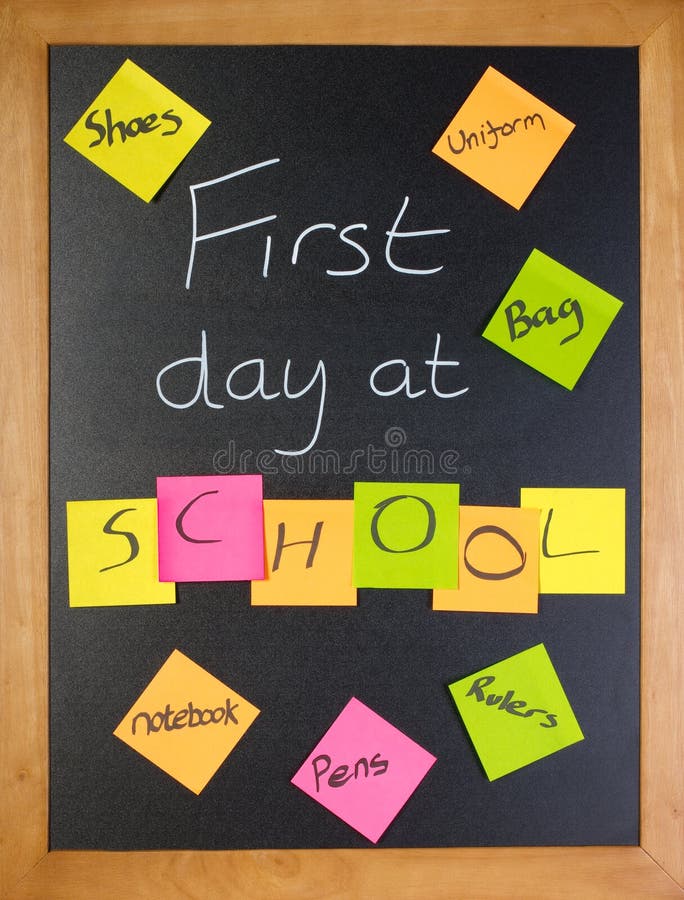 Shoes
Uniform
First
Bag
day at
dreamstime
SCHOOL
notebook
Rulers
Pens